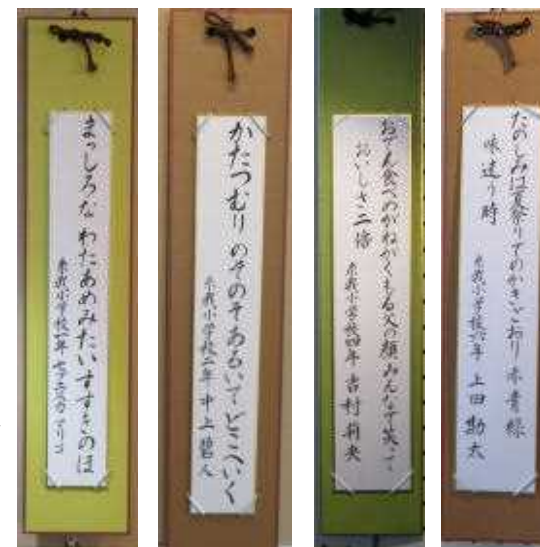 まっしろな わたあめみたい すすきのほ
糸我小学校一年
かたつむり のそのそあるいて どこへいく
糸我小学校二年 中上碧人
おでん食べめがねがくもる父の顔みんなで笑って
おいしさ二倍
糸我小学校四年 吉村莉央
たのしみは夏祭りでのかきごおり 赤青緑
味違う時
糸我小学校六年 上田勘太